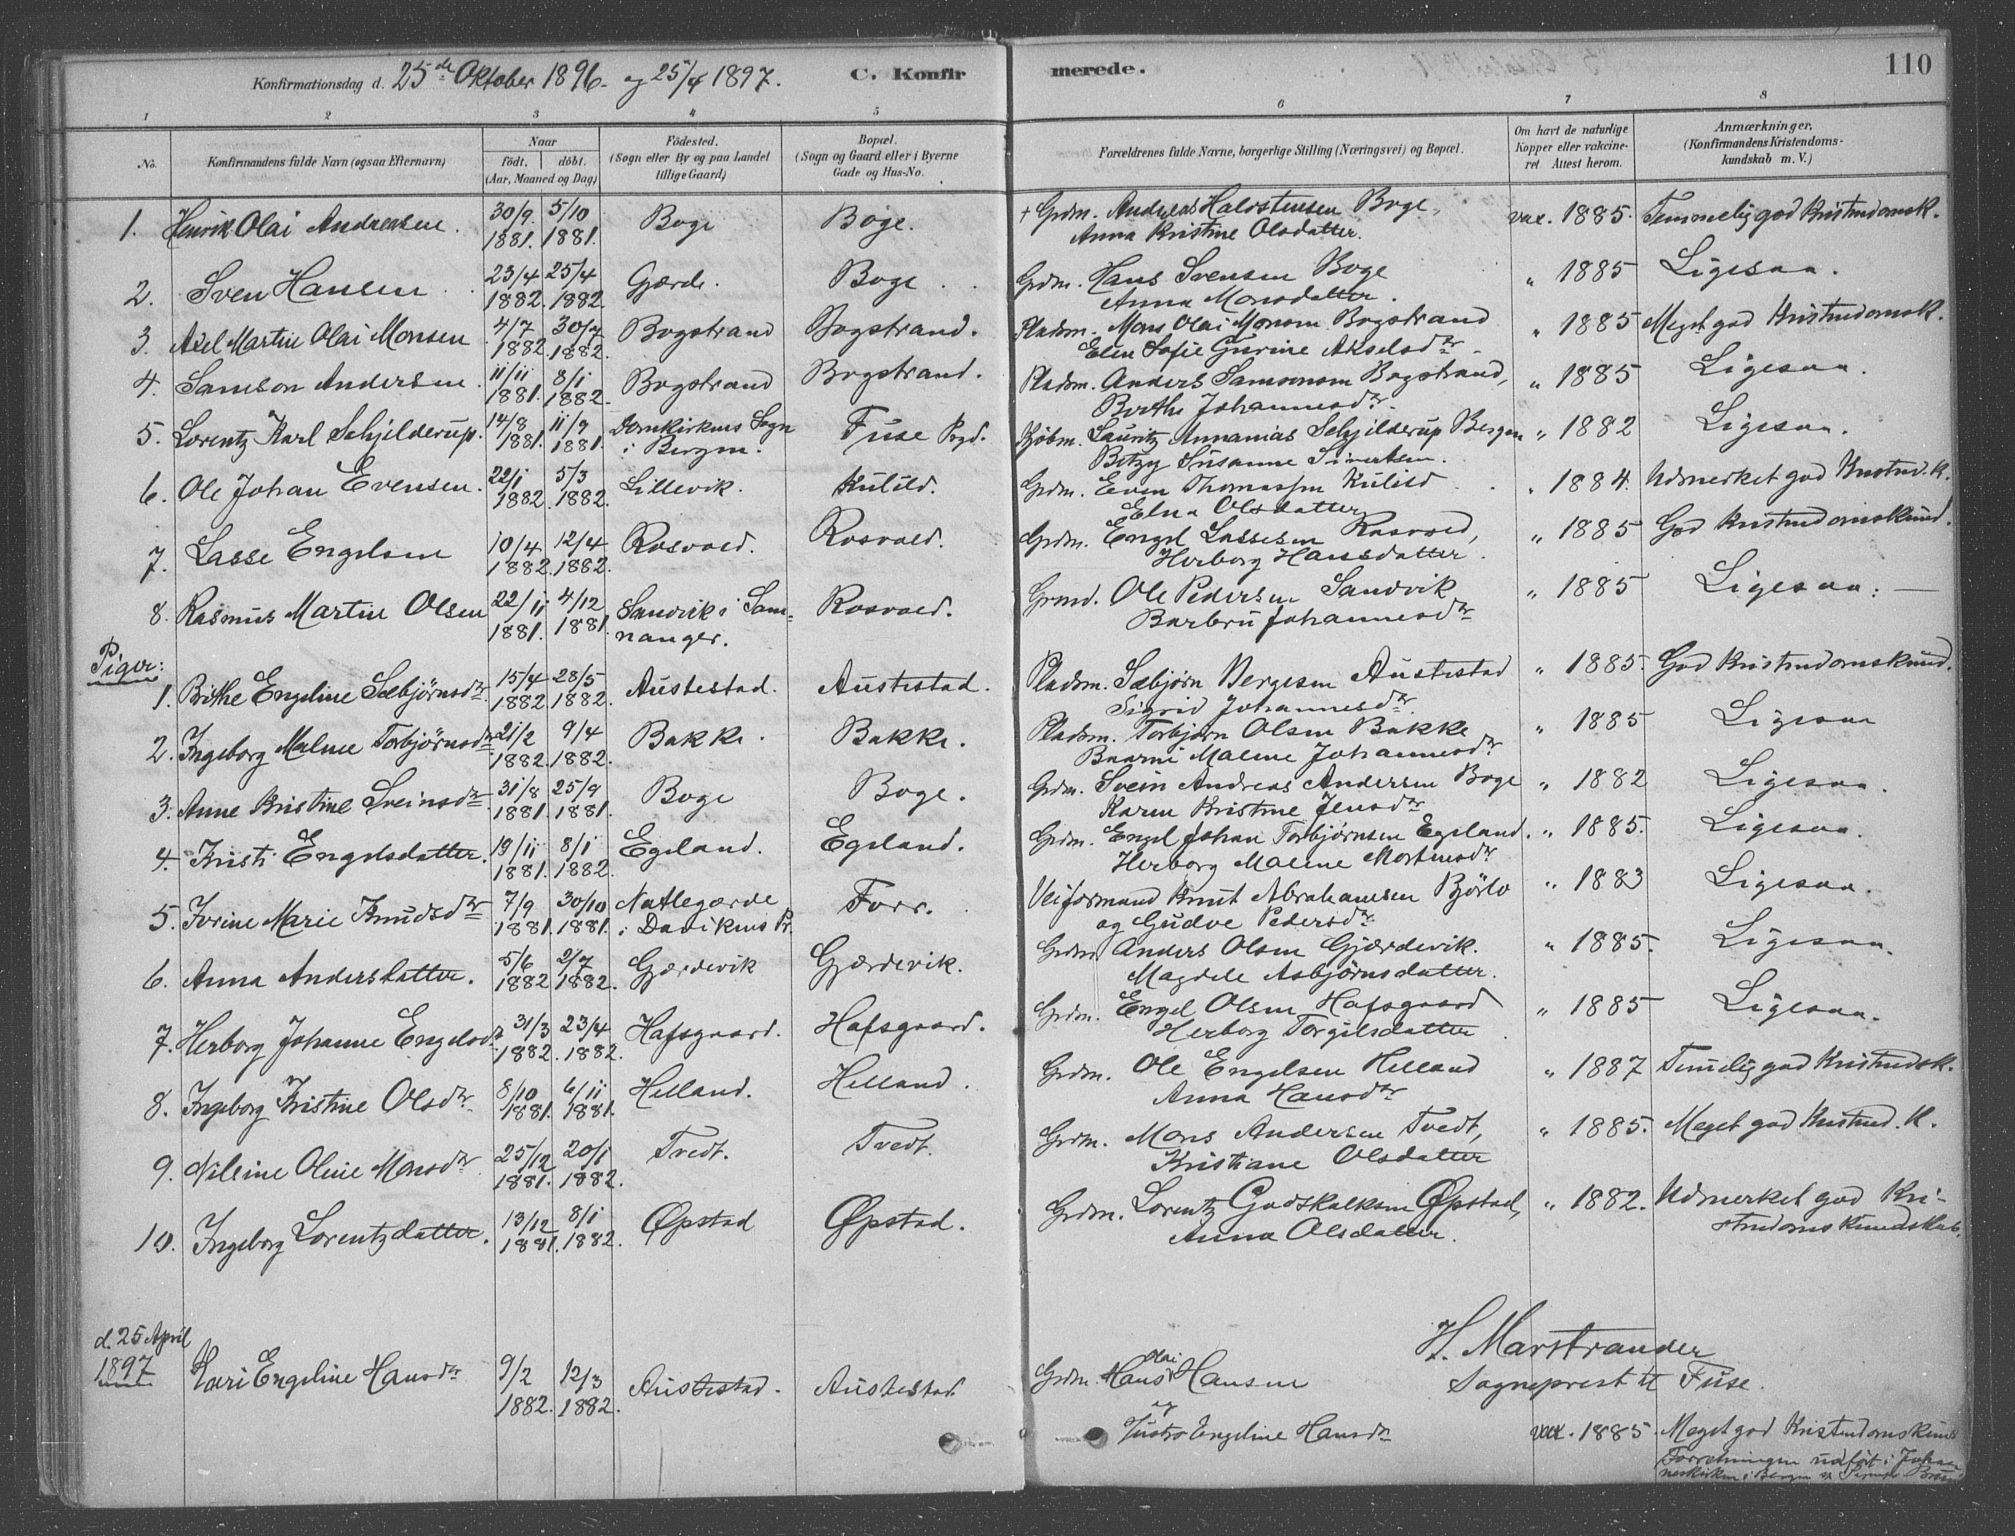 Konfirmationsdag d. 25de Oktober 1896. og 25/4 1897. C. Konfirmerede. 110
1 2 3 4 5 6 7 8
No. Konfirmandens fulde Navn (ogsaa Efternavn) Naar født. døbt. (Aar, Maaned og Dag) Fødested. (Sogn eller By og paa Landet tillige Gaard) Bopæl. (Sogn og Gaard eller i Byerne Gade og Hus-No. Forældrenes fulde Navne, borgerlige Stilling (Næringsvei) og Bopæl. Om havt de naturlige Kopper eller vakcineret Attest herom. Anmærkninger. (Konfirmandens Kristendomskundskab m. V.)
1. Henrik Olai Andersen. 30/9 1881. 5/10 1881. Boge Boge. + Grdm. Anders Halvstensen Boge, vax. 1885. Temmelig god Kristendomsk.
Anna Kristine Olsdatter.
2. Sven Hansen 23/4 1882. 25/4 1882. Gjærde. Boge Grdm. Hans Svensen Boge " 1885 Ligesaa.
Anna Monsdatter.
3. Axel Martin Olai Monsen 4/7 1882. 30/7 1882. Bogstrand Bogstrand. Pladsm. Mons Olai Monsen Bogstrand " 1885 Meget god Kristendomsk.
Elen Sofie Gurine Akselsdtr.
4. Samson Andersen 11/11 1881. 8/1 1882. Bogstrand Bogstrand. Pladsm. Anders Samsonsen Bogstrand, " 1885 Ligesaa.
Berthe Johannesdtr.
5. Lorentz Karl Schjelderup. 14/8 1881. 11/9 1881. Domkirkens Sogn i Bergen. Fuse Prgd. Kjøbm. Lauritz Annanias Schjelderup Bergen " 1882 Ligesaa.
Betzy Susanne Sivertsen.
6. Ole Johan Evensen. 22/1 1882. 5/3 1882. Lillevik. Kulild. Grdm. Even Thomassen Kulild " 1884. Udmerket god Kristend. K.
Elna Olsdatter
7. Lasse Engelsen 10/4 1882. 12/4 1882. Rosvold. Rosvold. Grdm. Engel Lassesen Rosvold, " 1885 God Kristendomskund.
Herborg Hansdatter.
8. Rasmus Martin Olsen 22/11 1881. 4/12 1881. Sandvik i Samnanger. Rosvold. Grmd. Ole Pedersen Sandvik " 1885 Ligesaa. —
Barbru Johannesdtr
Piger:
1. Brithe Engeline Sæbjørnsdtr 15/4 1882. 28/5 1882. Austestad. Austestad. Pladsm. Sæbjørn Bergesen Austestad " 1885. God Kristendomskund.
Sigrid Johannesdtr.
2. Ingeborg Malene Torbjørnsdtr 21/2 1882. 9/4 1882. Bakke. Bakke. Pladsm. Torbjørn Olsen Bakke " 1885 Ligesaa
Malene Johannesdtr
3. Anne Kristine Sveinsdtr 31/8 1881. 25/9 1881. Boge Boge. Grdm. Svein Andreas Andersen Boge " 1882 Ligesaa.
Karen Kristine Jensdtr
4. Kristi Engelsdatter. 19/11 1881. 8/1 1882. Egeland. Egeland. Grdm. Engel Johan Torbjørnsen Egeland. " 1885. Ligesaa.
Herborg Malene Mortensdtr
5. Jorine Marie Knudsdtr 7/9 1881. 30/10 1881. Natlegærde i Davikens Pr. Forr. Veiformand Knut Abrahamsen Bjørlo " 1883 Ligesaa.
og Gudve Pedersdtr.
6. Anna Andersdatter. 5/6 1882 2/7 1882. Gjærdevik Gjærdevik. Grdm Anders Olsen Gjærdevik. " 1885. Ligesaa.
Magdele Asbjørnsdatter.
7. Herborg Johanne Engelsdtr 31/3 1882. 23/4 1882. Hafsgaard. Hafsgaard. Grdm. Engel Olsen Hafsgaard " 1885 Ligesaa.
Herborg Torgilsdatter
8. Ingeborg Kristine Olsdtr. 8/10 1881. 6/11 1881. Helland. Helland. Grdm. Ole Engelsen Helland " 1887 Temelig god Kristendsk.
Anna Hansdtr
9. Nilsine Oline Monsdtr 25/12 1881. 20/1 1882. Tvedt. Tvedt. Grdm. Mons Andersen Tvedt, " 1885. Meget god Kristend. K.
Kristiane Olsdatter
10. Ingeborg Lorentzdatter. 13/12 1881. 8/1 1882. Øpstad Øpstad. Grdm. Lorentz Godskalksen Øpstad, " 1882. Udmerket god Kristendomskundskab.
Anna Olsdatter.
H. Marstrander
Sogneprest til Fuse.
d. 25 April 1897 Kari Engeline Hansdtr 9/2 1882. 12/3 1882. Austestad. Austestad Grdm. Hans Olai Hansen
og Engeline Hansdtr vax. 1885. Meget god Kristendomskund
Forretningen udført i Johanneskirken i Bergen